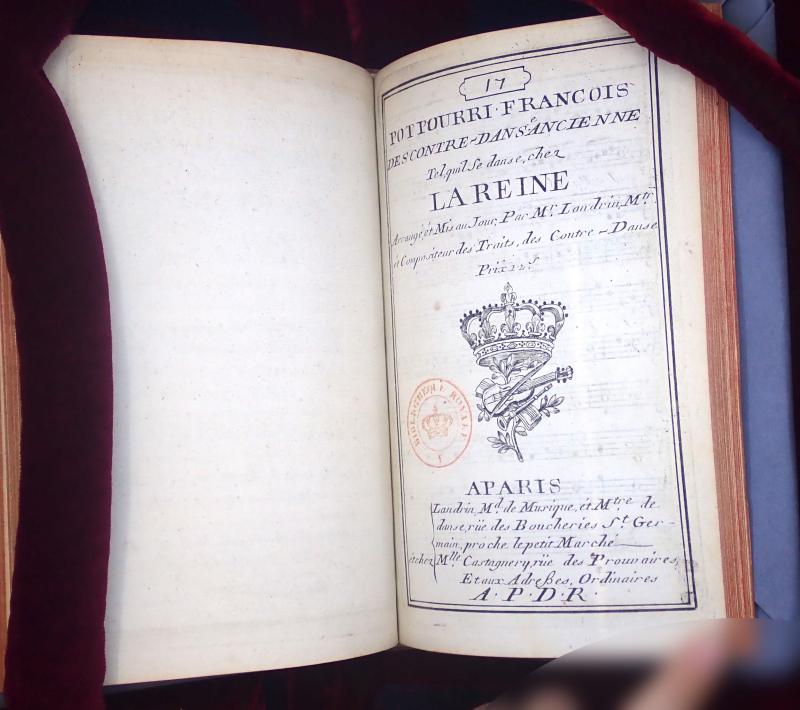 17
POTPOURRI·FRANCOIS
DES CONTRE-DANSE ANCIENNE
Tel, quil Se danse, chez
LA REINE
Arrangé, et Mis au Jour, Par Mr. Landrin, Mtr.
et Compositeur des Traits, des Contre-Danse
Prix 12 s
BIBLIOTHEQUE ROYALE
A PARIS
Landrin, Md. de Musique, et Mtre de
danse, rüe des Boucheries St. Ger-
main, proche le petit Marché
et chez Mlle Castagnery, rüe des Prouvaires,
Et aux Adreßes, Ordinaires
A·P·D·R·